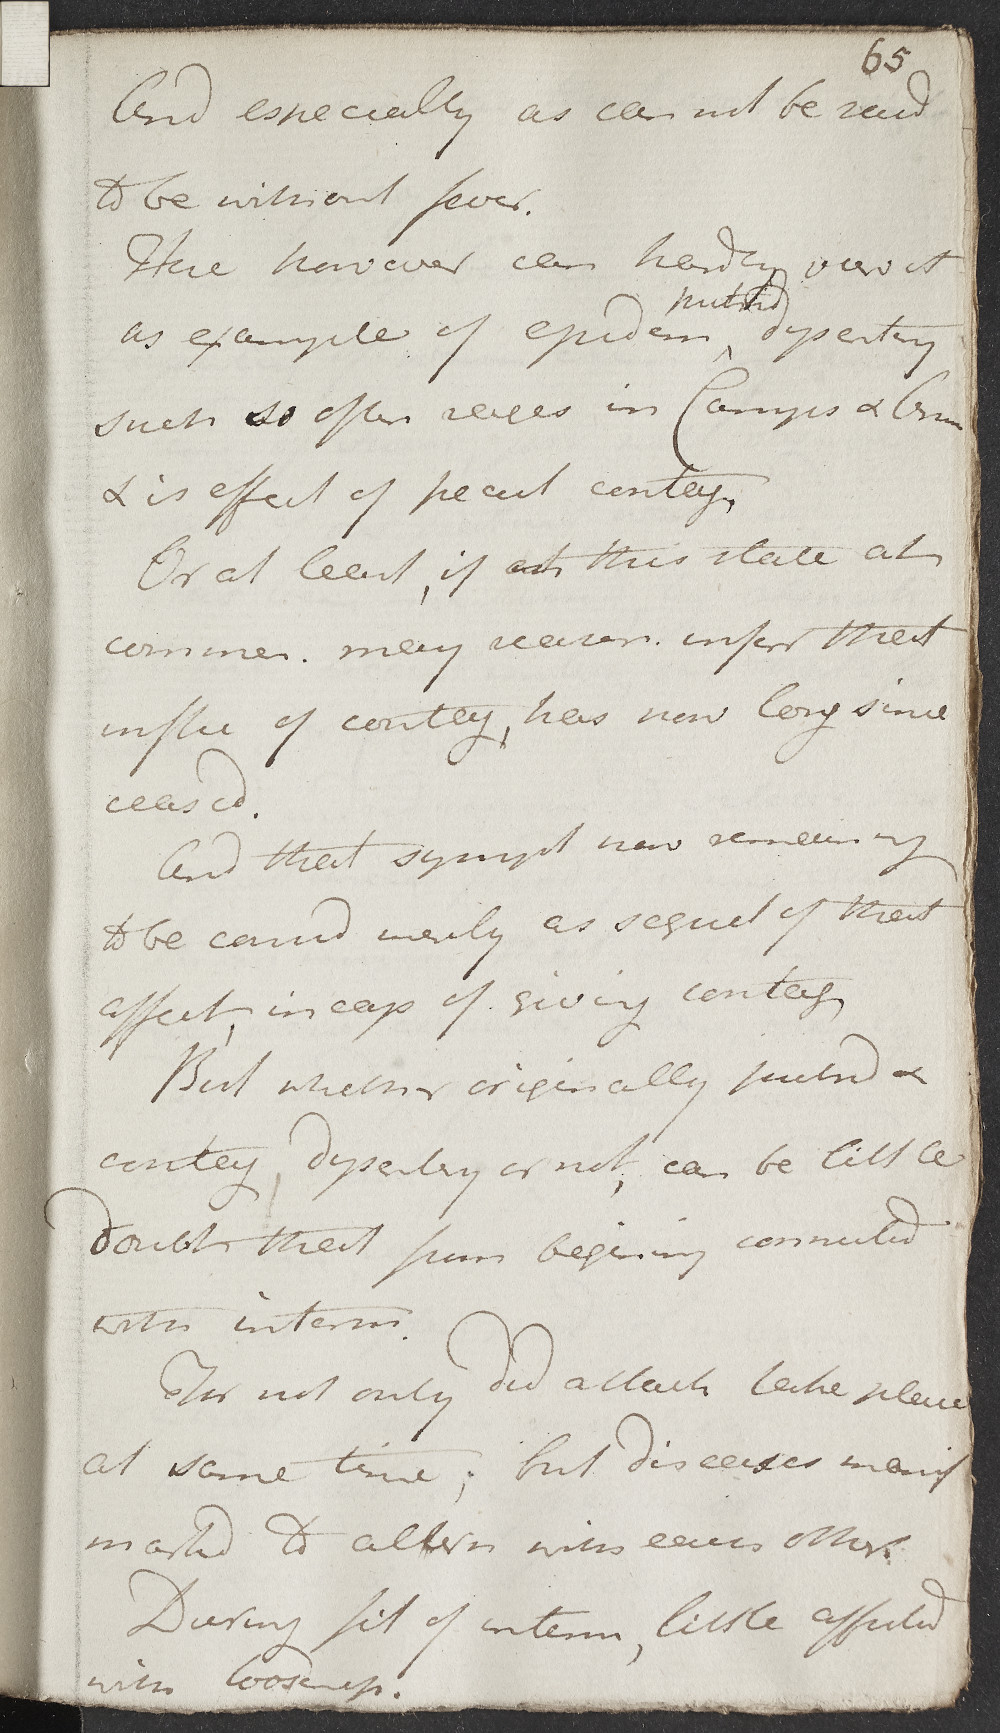 65
And especially as can not be said
to be without fever.
Here however can hardly view it
putrid
as example of epidem, dysentery
such so often rages in Camps &
& is effect of pecul contag,
Or at least, if this state at
commen. may reason. infer that
influ of contag, has now long since
ceased.
And that sympt now remaining
to be consid merely as sequel of that
affect, incap of giving contag,
But whether originally putrid &
contag, dysentery or not, can be little
doubt that from begining connected
with interm.
For not only did attack take place
at same time; but diseases manif
marked to altern with each other.
During fit of interm, little affected
with looseness.